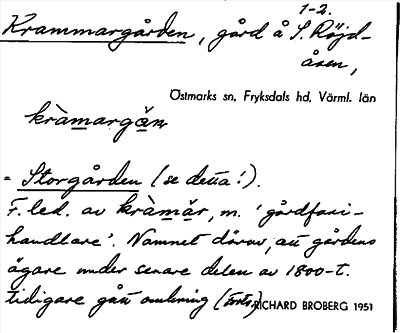 1-2.
Krammargården, gård å S. Röjd-
åsen,
Östmarks sn, Fryksdals hd, Värml. län
kràmargån
= Storgården (se detta!).
F. led. av kràmar, m. 'gårdfari-
handlare'. Namnet därav, att gårdens
ägare under senare delen av 1800-t.
tidigare gått omkring (forts.)
RICHARD BROBERG 1951